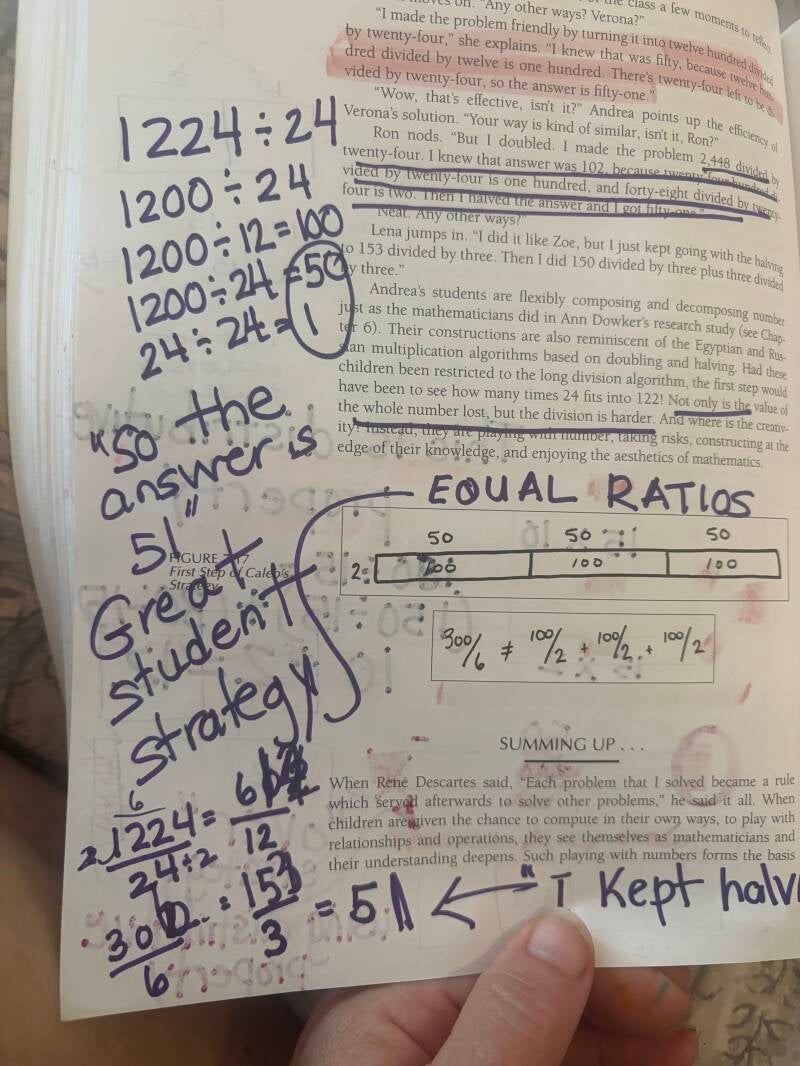 moves on. "Any other ways? Verona?"
the class a few moments to reflect
"I made the problem friendly by turning it into twelve hundred divided
by twenty-four," she explains. "I knew that was fifty, because twelve hun-
dred divided by twelve is one hundred. There's twenty-four left to be di-
vided by twenty-four, so the answer is fifty-one."
"Wow, that's effective, isn't it?" Andrea points up the efficiency of
Verona's solution. "Your way is kind of similar, isn't it, Ron?"
Ron nods. "But I doubled. I made the problem 2,448 divided by
twenty-four. I knew that answer was 102, because twenty-four hundred di-
vided by twenty-four is one hundred, and forty-eight divided by twenty-
four is two. Then I halved the answer and I got fifty-one."
"Neat. Any other ways?"
Lena jumps in. "I did it like Zoe, but I just kept going with the halving
to 153 divided by three. Then I did 150 divided by three plus three divided
by three."
Andrea's students are flexibly composing and decomposing number
just as the mathematicians did in Ann Dowker's research study (see Chap-
ter 6). Their constructions are also reminiscent of the Egyptian and Rus-
sian multiplication algorithms based on doubling and halving. Had these
children been restricted to the long division algorithm, the first step would
have been to see how many times 24 fits into 122! Not only is the value of
the whole number lost, but the division is harder. And where is the creativ-
ity? Instead, they are playing with number, taking risks, constructing at the
edge of their knowledge, and enjoying the aesthetics of mathematics.
1224÷24
1200÷24
1200÷12=100
1200÷24=50
24÷24=1
"So the
answer is
51"
Great
student
strategy
EQUAL RATIOS
FIGURE 7.17
First Step of Caleb's
Strategy
50 50 50
2 100 100 100
300/6 ≠ 100/2 + 100/2 + 100/2
SUMMING UP . . .
When René Descartes said, "Each problem that I solved became a rule
which served afterwards to solve other problems," he said it all. When
children are given the chance to compute in their own ways, to play with
relationships and operations, they see themselves as mathematicians and
their understanding deepens. Such playing with numbers forms the basis
6
1224 = 612
24÷2 12
= 153 = 51
6 3
"I Kept halv